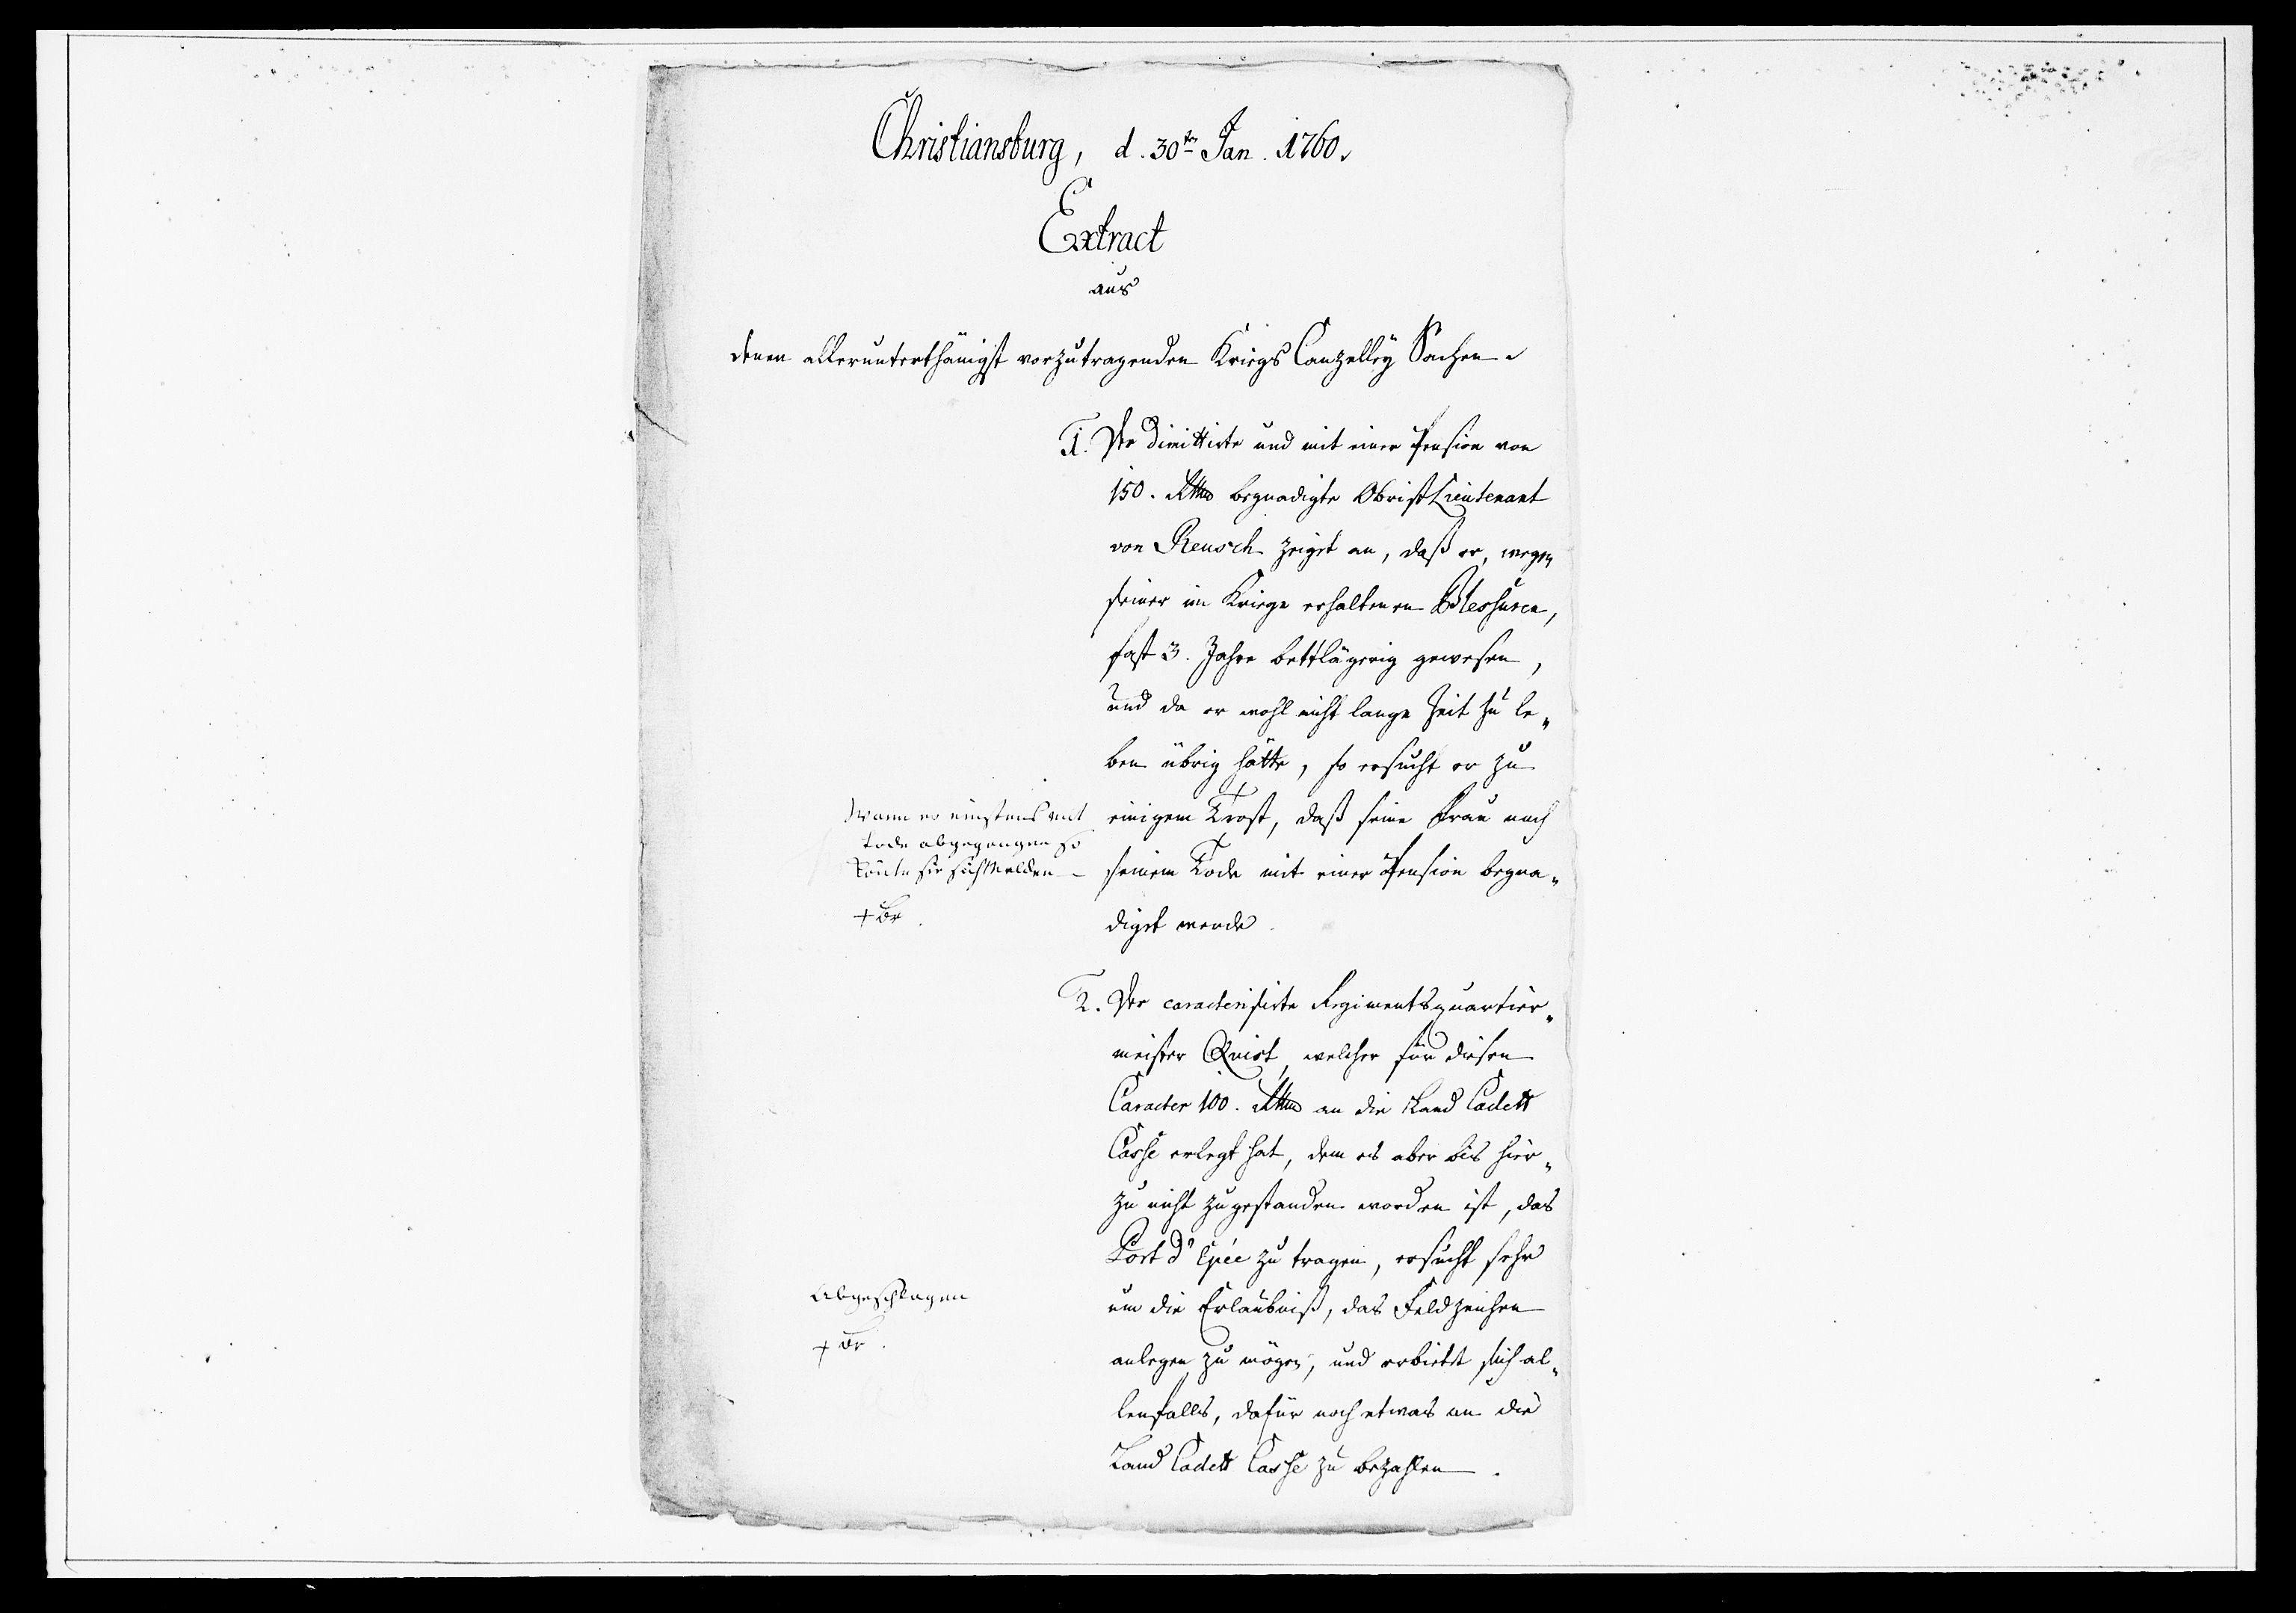 Christiansburg, d. 30ten Jan. 1760.
Extract
aus
denen allerunterthänigst vorzutragenden Kriegs Canzelley Sachen
1. Der dimittirte und mit einer Pension von
150. Rthlr begnadigte Obrist Lieutenant
von Reusch zeiget an, daß er, wegen
seiner im Kriege erhaltenen Blessuren,
fast 3. Jahre bettlägerig gewesen,
und da er wohl nicht lange Zeit zu le„
ben übrig hätte, so ersucht er zu
einigem Trost, daß seine Frau nach
seinem Tode mit einer Pension begna„
diget werde.
Wann er einstens mit
Tode abgegangen so
könte sie sich Melden
2. Der caracterisirte Regimentsquartier„
meister Quist, welcher für diesen
Caracter 100. Rthlr an die Land Cadett
Casse erlegt hat, dem es aber bis hier„
zu nicht zugestanden worden ist, das
Port d'Epée zu tragen, ersucht sehr
um die Erlaubniß, das Feldzeichen
anlegen zu mögen, und erbietet sich al„
lenfalls, dafür noch etwas an die
Land Cadett Casse zu bezahlen.
Abgeschlagen